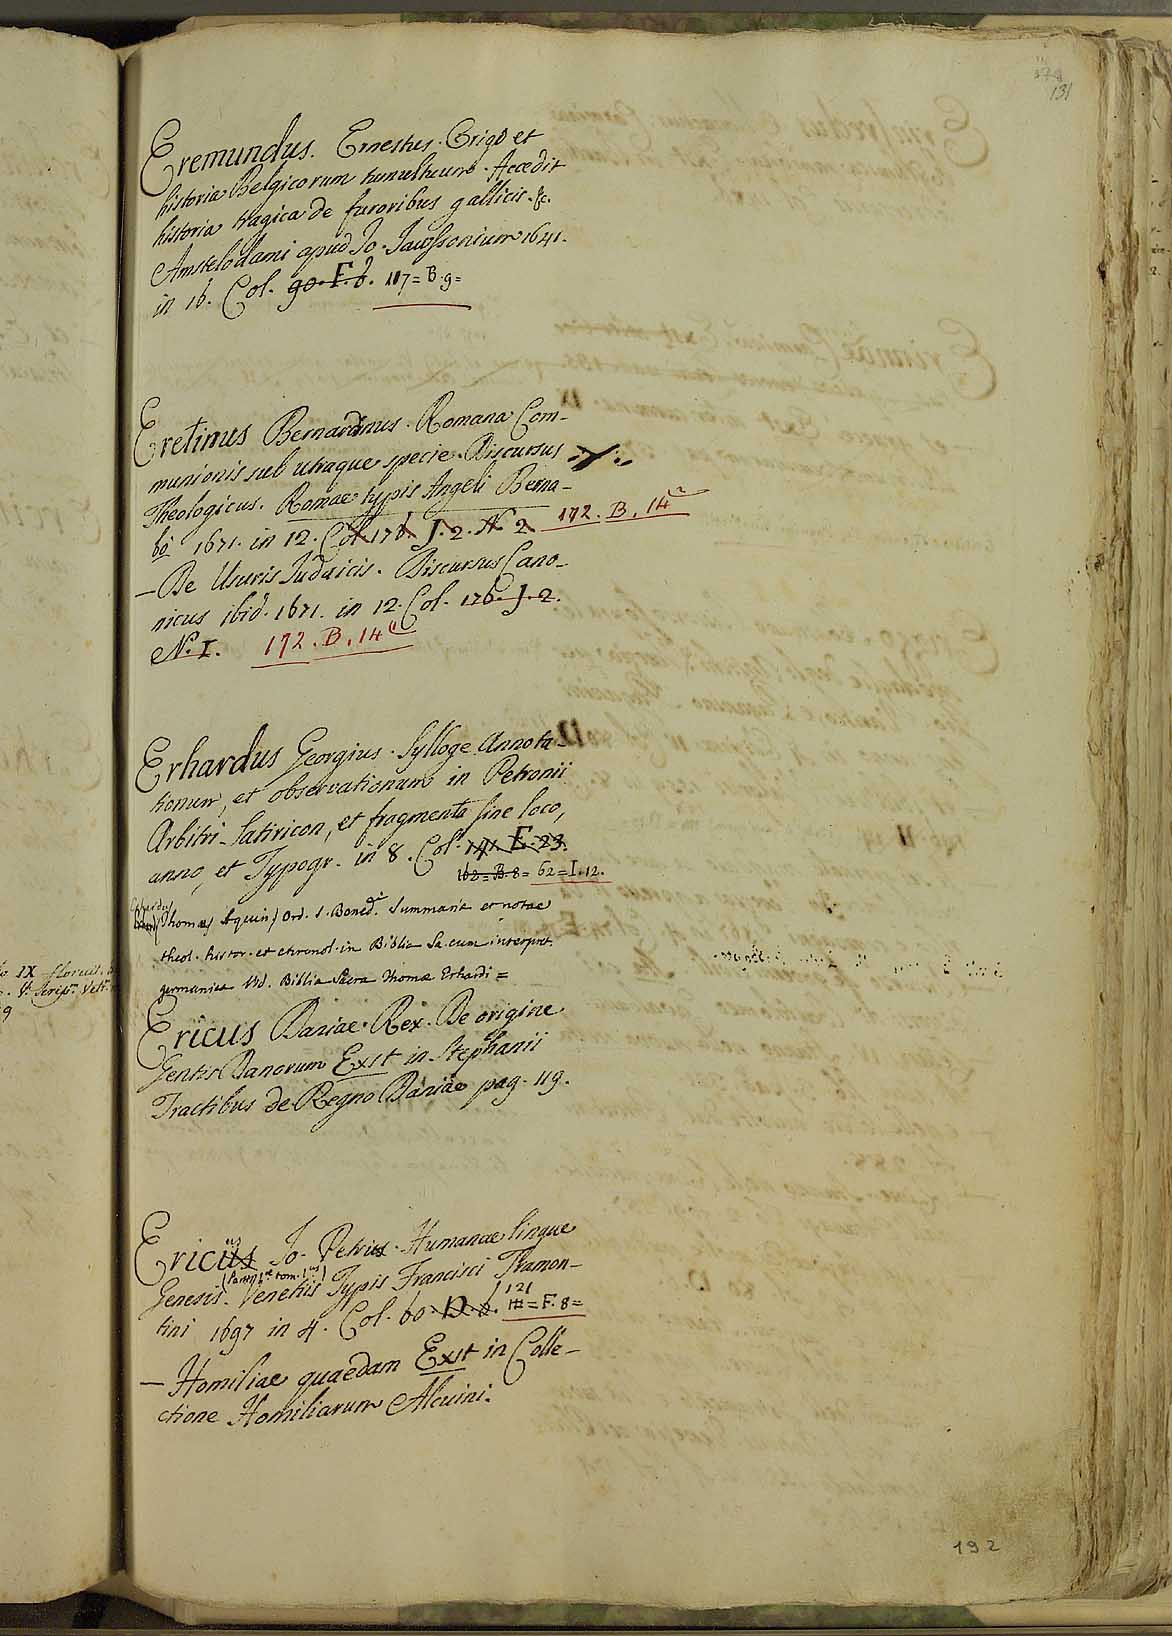 131
Eremundus. Ernestus. Origo et
historia Belgicorum tumultuum. Accedit
historia tragica de furoribus gallicis. &c.
Amstelodami apud Jo. Janssonium 1641.
in 16. Col. 90. F. 6. 117 = B. 9 =
Eretinus Bernardinus. Romana Com-
munionis sub utraque specie. Discursus
Theologicus. Romae typis Angeli Berna-
bò 1671. in 12. Col. 176. J. 2. N. 2. 172. B. 14
— De Usuris Judaicis. Discursus Cano-
nicus ibid. 1671. in 12. Col. 176. J. 2.
N. I. 172. B. 14
Erhardus Georgius. Sylloge Annota-
tionum, et observationum in Petronii
Arbitri Satiricon, et fragmenta sine loco,
anno, et Typogr. in 8. Col. 141. E. 23.
162 = B. 8 = 62 = I. 12.
Erhardus
Thomas Aquin) Ord. S. Bened. Summaria et notae
theol. histor. et chronol. in Biblia Sa. cum interpret.
germanica Vid. Biblia Sacra Thomae Erhardi =
Ericus Daniae. Rex. De origine
Gentis Danorum Exst in Stephanii
Tractibus de Regno Daniae pag. 119.
Ericus Jo. Petrus. Humanae linguae
Genesis. Venetiis Typis Francisci Tramon-
tini 1697 in 4. Col. 60. D. 6. 121 = F. 8 =
— Homiliae quaedam Exst in Colle-
ctione Homiliarum Alcuini.
192